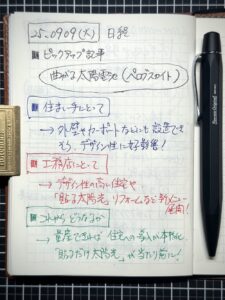 25.0909(火) 日経
■ピックアップ記事
曲がる太陽電池(ペロブスカイト)
■住まい手にとって
→外壁やカーポートなどにも設置できそう、デザイン性に好影響!
■工務店にとって
→デザイン性の高い住宅や
「貼る太陽光」リフォームなど新メニュー
■これからどうなるか
→量産できれば 住宅への導入が本格化、
「貼るだけ太陽光」が当たり前に!